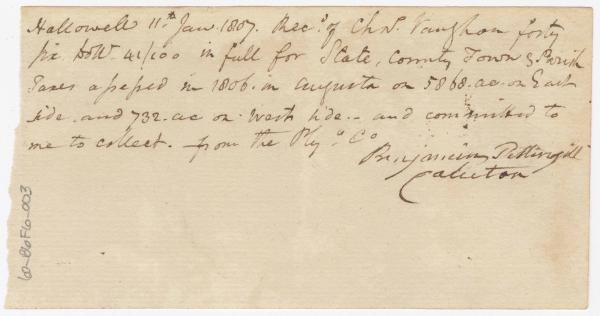 Hallowell 11.th Jan. 1807. Rec.d of Cha.s Vaughan forty
six Doll.s 41/100 in full for State, County Town & Parish
Taxes assessed in 1806. in Augusta on 5868. ac. on East
side. and 732. ac on West side. - and committed to
me to collect. from the Ply.o Co
Benjamin Pettingill
Collector
60-B6F6-003